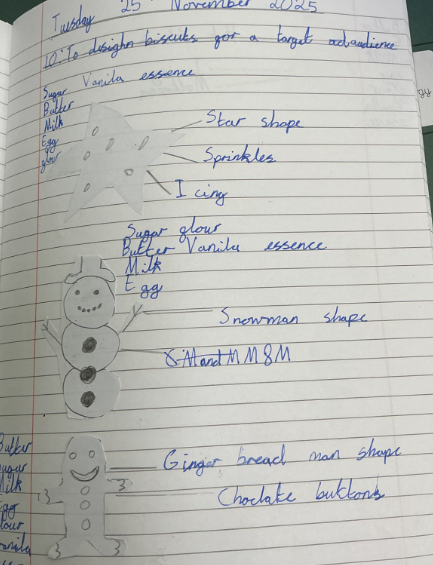 Tuesday 25 November 2025
LO: To disighn biscuits gor a target adaudience
Sugar Vanila essence
Butter
Milk
Egg
glour
Star shape
Sprinkles
Icing
Sugar glour
Butter Vanila essence
Milk
Egg
Snowman shape
M and M M&M
Ginger bread man shape
Choclate buttons
Butter
Sugar
Milk
Egg
glour
Vanila